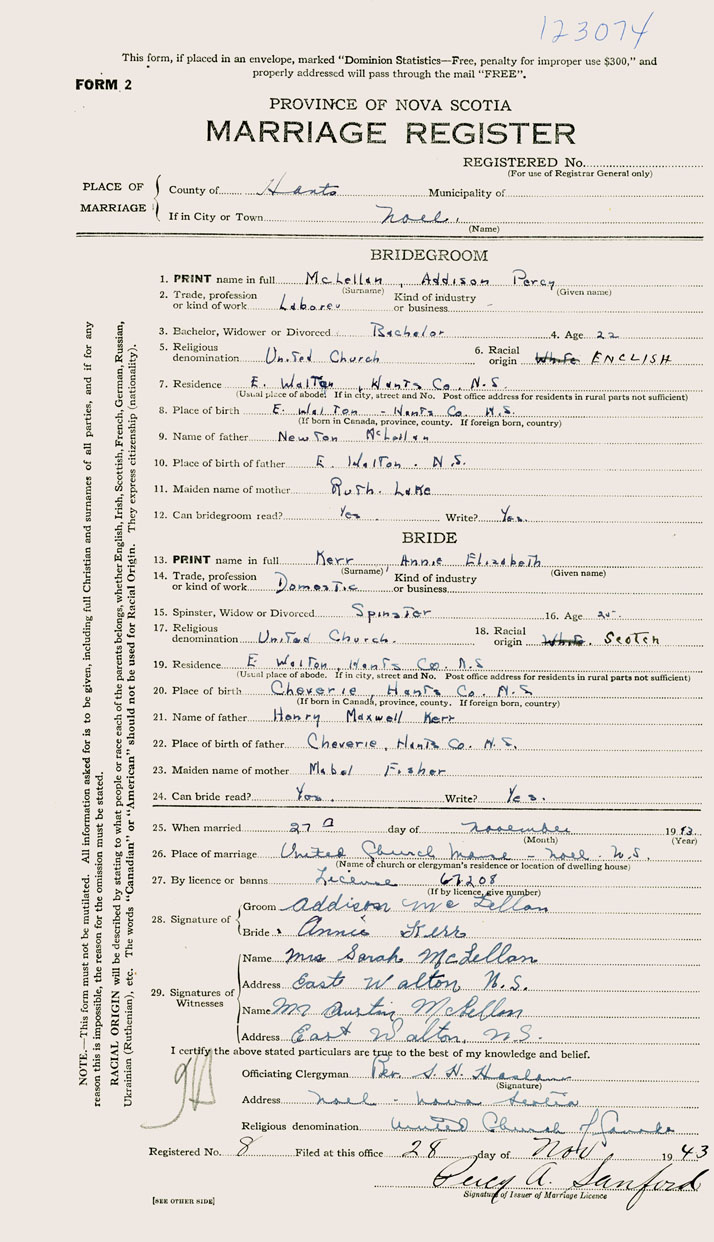 123074
This form, if placed in an envelope, marked "Dominion Statistics—Free, penalty for improper use $300," and
properly addressed will pass through the mail "FREE".
FORM 2
PROVINCE OF NOVA SCOTIA
MARRIAGE REGISTER
REGISTERED No.
(For use of Registrar General only)
PLACE OF MARRIAGE
County of Hants Municipality of
If in City or Town Noel.
(Name)
BRIDEGROOM
1. PRINT name in full McLellan, Addison Percy
(Surname) (Given name)
2. Trade, profession or kind of work Laborer Kind of industry or business -
3. Bachelor, Widower or Divorced Bachelor 4. Age 22
5. Religious denomination United Church 6. Racial origin White ENGLISH
7. Residence E. Walton, Hants Co. N.S.
(Usual place of abode. If in city, street and No. Post office address for residents in rural parts not suffient)
8. Place of birth E. Walton - Hants Co. N.S.
(If born in Canada, province, county. If foreign born, country)
9. Name of father Newton McLellan
10. Place of birth of father E. Walton. N.S.
11. Maiden name of mother Ruth. Lake
12. Can bridegroom read? Yes. Write? Yes.
BRIDE
13. PRINT name in full Kerr Annie Elizabeth
(Surname) (Given name)
14. Trade, profession or kind of work Domestic Kind of industry or business
15. Spinster, Widow or Divorced Spinster 16. Age
17. Religious denomination United Church. 18. Racial origin White. SCOTCH
19. Residence E Walton, Hants Co. N.S
(Usual place of abode. If in city, street and No. Post office address for residents in rural parts not sufficient)
20. Place of birth Cheverie, Hants Co. N.S
(If born in Canada, province, county. If foreign born, country)
21. Name of father Henry Maxwell Kerr
22. Place of birth of father Cheverie, Hants Co. N.S.
23. Maiden name of mother Mabel Fisher
24. Can bride read? Yes. Write? Yes.
25. When married 27 day of November 1943.
(Month) (Year)
26. Place of marriage United Church Manse - Noel - N.S.
(Name of church or clergyman's residence or location of dwelling house)
27. By licence or banns License 67208
(If by licence, give number)
28. Signature of
Groom Addison McLellan
Bride Annie Kerr
29. Signatures of Witnesses
Name Mrs Sarah McLellan
Address East Walton N.S.
Name Mr Austin McLellan
Address East Walton, N.S.
I certify the above stated particulars are true to the best of my knowledge and belief.
Officiating Clergyman Rev. S. H.
(Signature)
Address Noel - Nova Scotia
Religious denomination United Church of Canada
Registered No. 8 Filed at this office 28 day of Nov 1943
Percy A. Sanford
Signature of Issuer of Marriage Licence
[SEE OTHER SIDE]
NOTE.—This form must not be mutilated. All information asked for is to be given, including full Christian and surnames of all parties, and if for any
reason this is impossible, the reason for the omission must be stated.
RACIAL ORIGIN will be described by stating to what people or race each of the parents belongs, whether English, Irish, Scottish, French, German, Russian,
Ukrainian (Ruthenian), etc. The words "Canadian" or "American" should not be used for Racial Origin. They express citizenship (nationality).